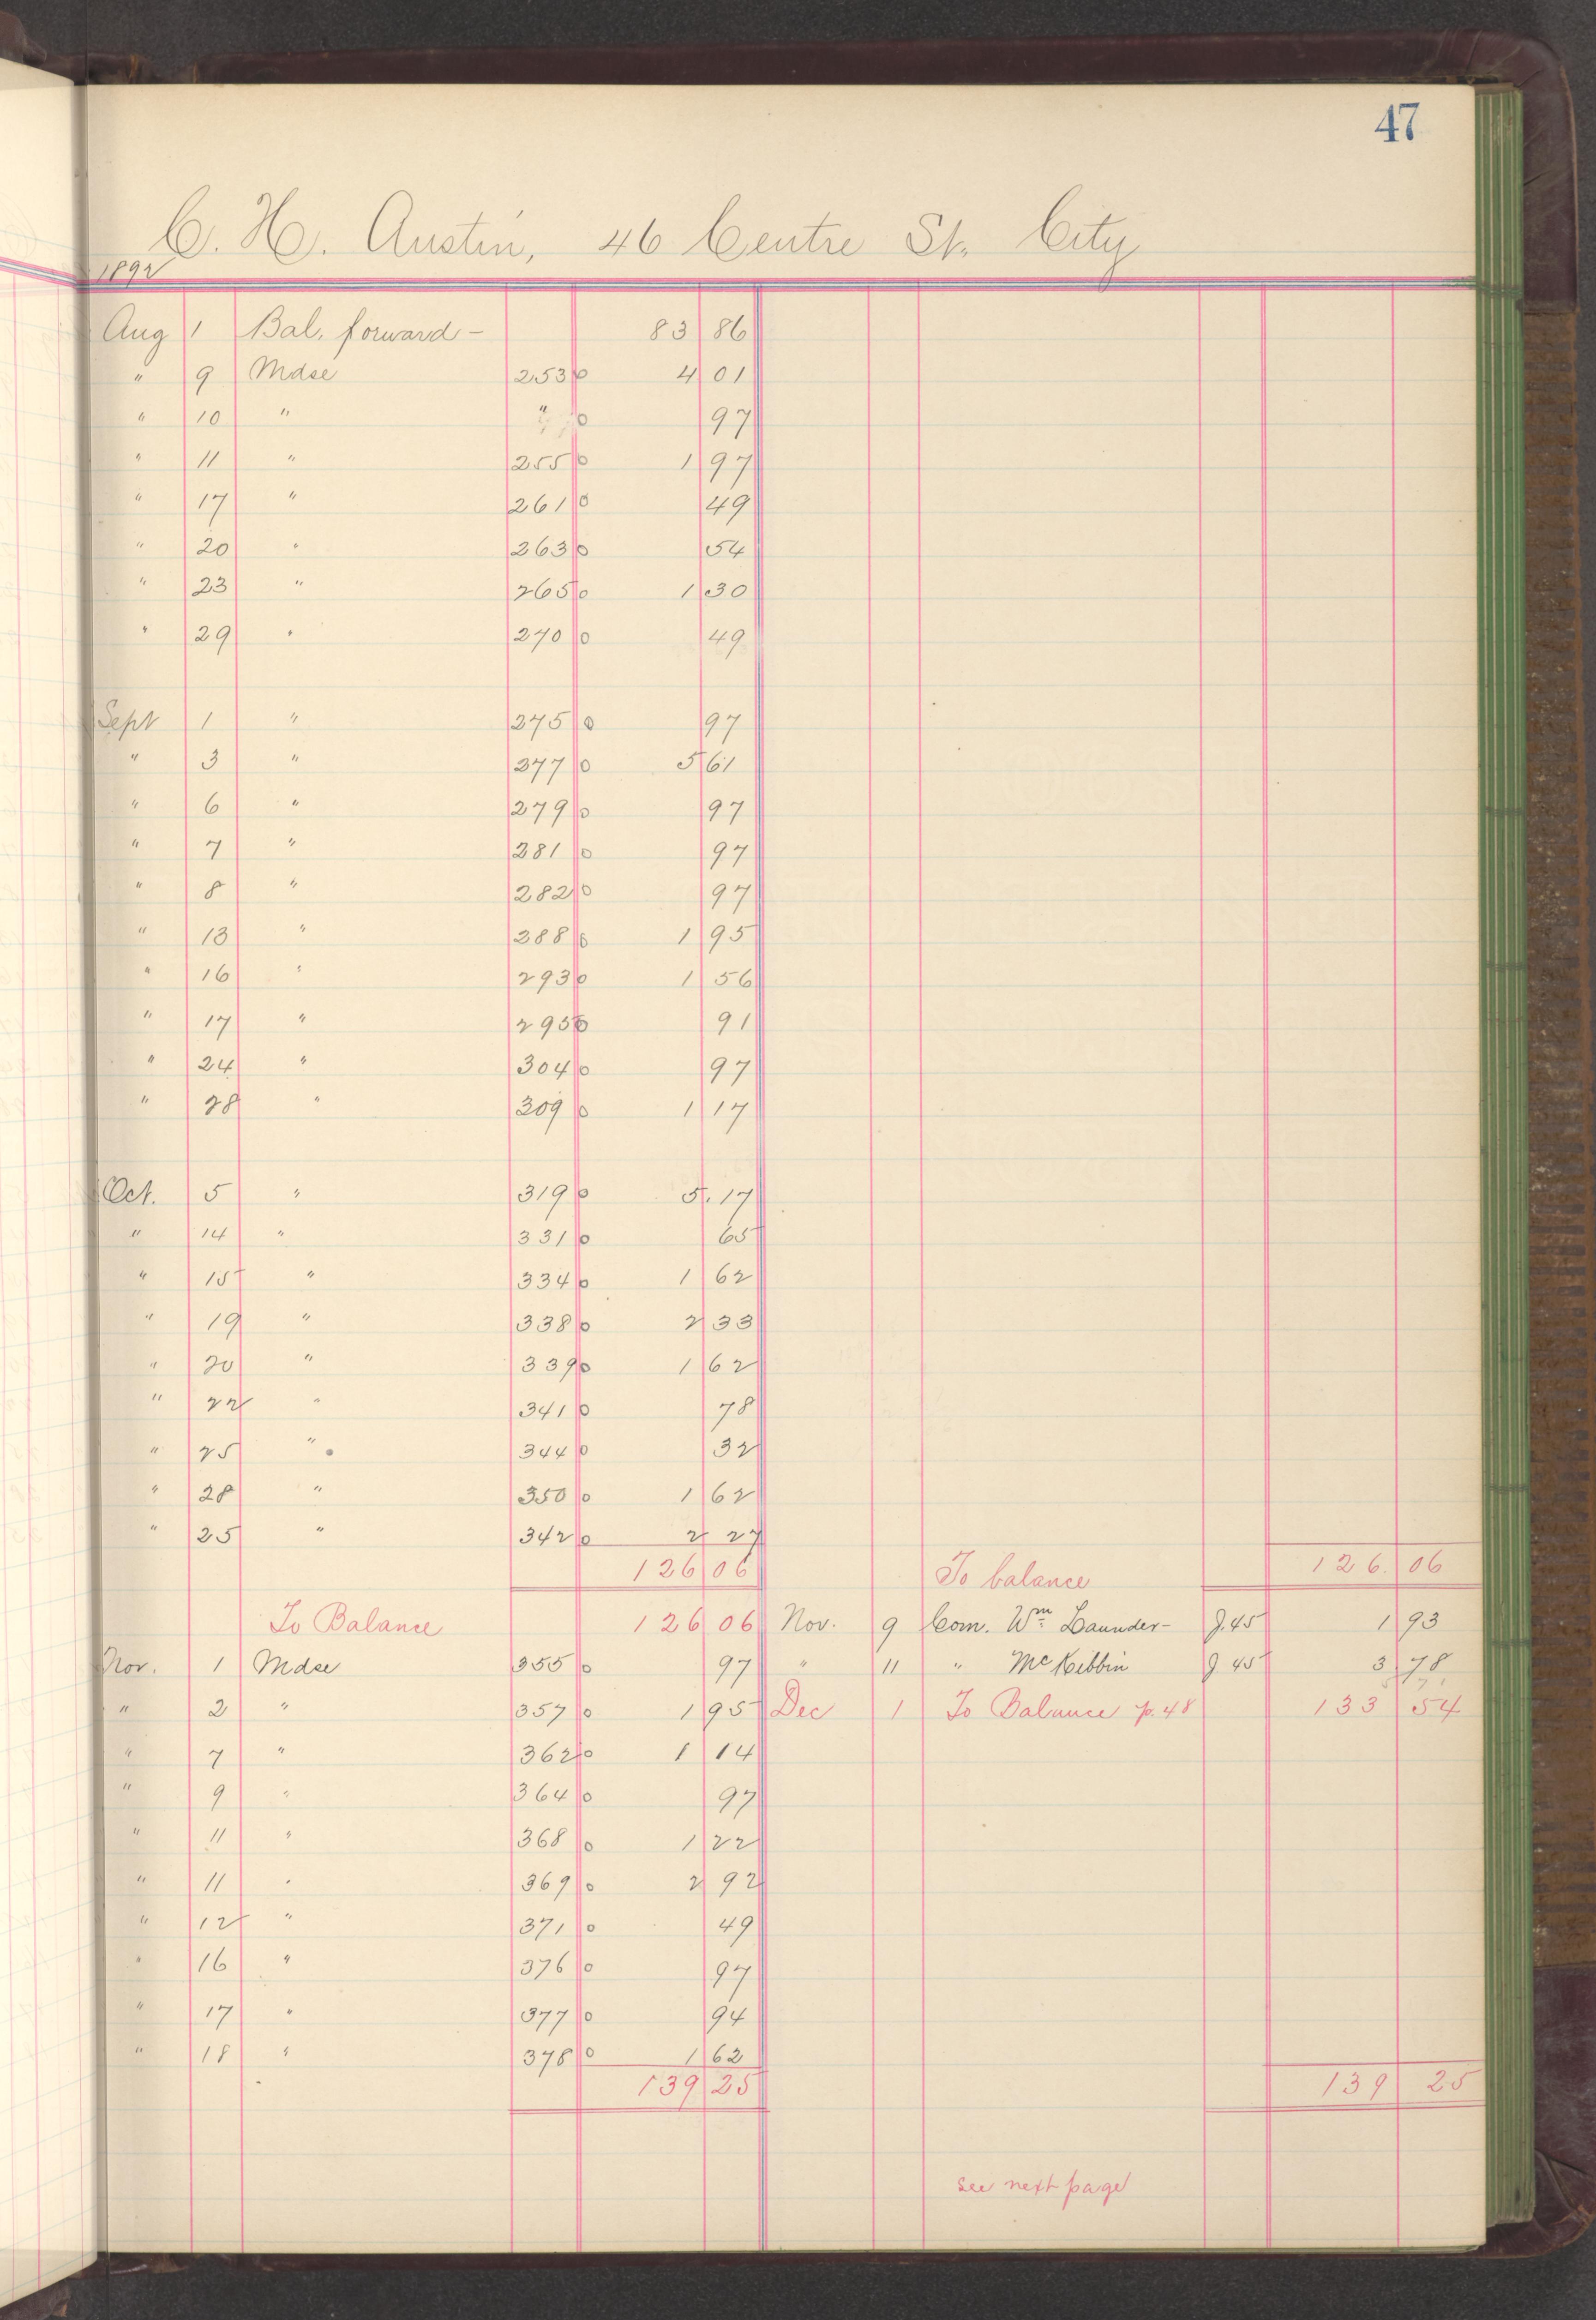 47
C. H. Austin, 46 Centre St. City
1892
Aug 1 Bal. forward - 83 86
" 9 Mdse 253 0 4 01
" 10 " " 0 97
" 11 " 255 0 1 97
" 17 " 261 0 49
" 20 " 263 0 54
" 23 " 265 0 1 30
" 29 " 270 0 49
Sept 1 " 275 0 97
" 3 " 277 0 5 61
" 6 " 279 0 97
" 7 " 281 0 97
" 8 " 282 0 97
" 13 " 288 0 1 95
" 16 " 293 0 1 56
" 17 " 295 0 91
" 24 " 304 0 97
" 28 " 309 0 1 17
Oct. 5 " 319 0 5.17
" 14 " 331 0 65
" 15 " 334 0 1 62
" 19 " 338 0 2 33
" 20 " 339 0 1 62
" 22 " 341 0 78
" 25 " 344 0 32
" 28 " 350 0 1 62
" 25 " 342 0 2 27
126 06 To balance 126. 06
To Balance 126 06 Nov. 9 Com. Wm Launder- J. 45 1 93
Nov. 1 Mdse 355 0 97 " 11 " McKibbin J 45 3 78
" 2 " 357 0 1 95 Dec 1 To Balance p. 48 133 54
" 7 " 362 0 1 14
" 9 " 364 0 97
" 11 " 368 0 1 22
" 11 " 369 0 2 92
" 12 " 371 0 49
" 16 " 376 0 97
" 17 " 377 0 94
" 18 " 378 0 1 62
139 25 139 25
see next page